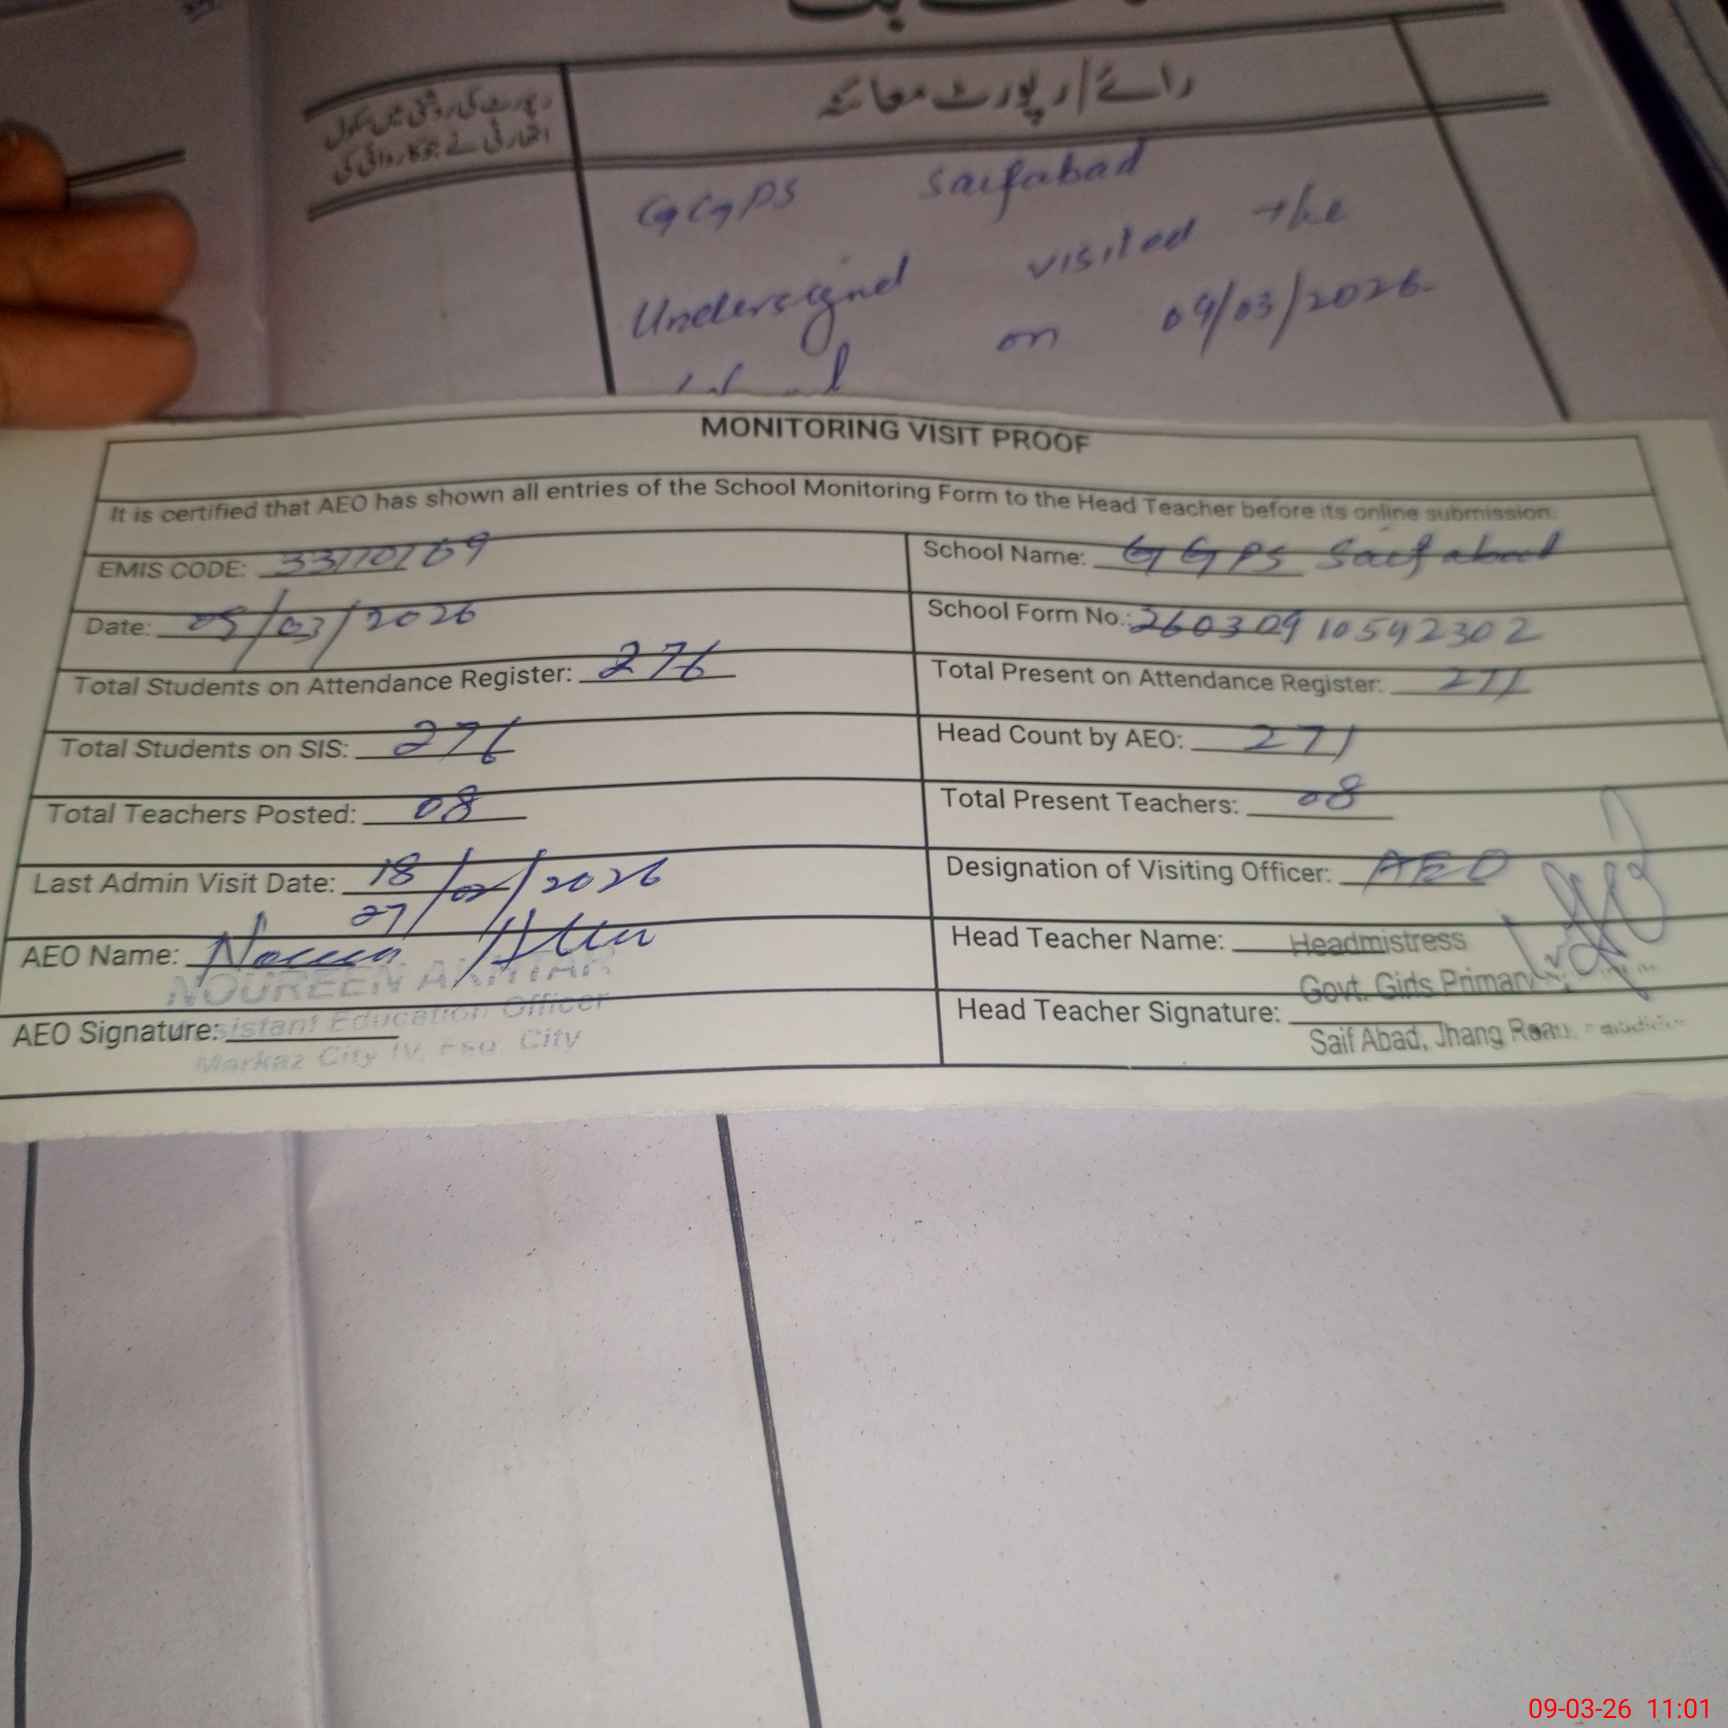 رائے/رپورٹ معائنہ
رپورٹ کی روشنی میں سکول
اتھارٹی نے جو کاروائی کی
GGPS Saifabad
Undersigned visited the
on 09/03/2026
MONITORING VISIT PROOF
It is certified that AEO has shown all entries of the School Monitoring Form to the Head Teacher before its online submission.
EMIS CODE: 33110109
School Name: GGPS Saifabad
Date: 09/03/2026
School Form No.: 26030910542302
Total Students on Attendance Register: 276
Total Present on Attendance Register: 271
Total Students on SIS: 276
Head Count by AEO: 271
Total Teachers Posted: 08
Total Present Teachers: 08
Last Admin Visit Date: 18/02/2026
27
Designation of Visiting Officer: AEO
AEO Name:
NOUREEN AKHTAR
Head Teacher Name: Headmistress
Govt. Girls Primary
AEO Signature: Assistant Education Officer
Markaz City IV, City
Head Teacher Signature:
Saif Abad, Jhang Road
09-03-26 11:01